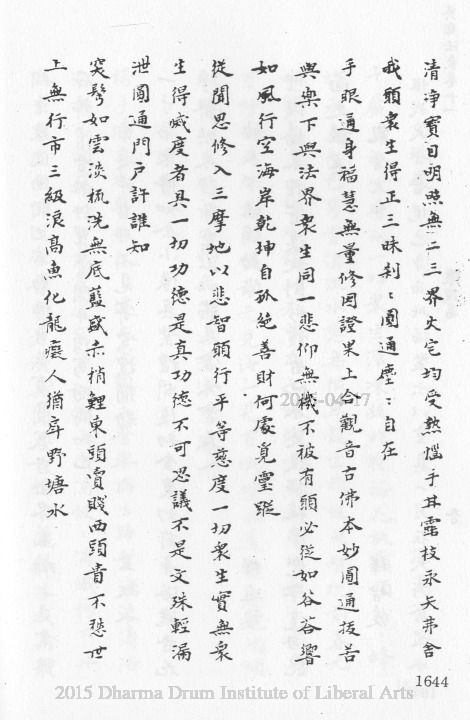 清淨寶目明照無二三界火宅均受熱惱手甘露枝永矢弗舍
我願衆生得正三昧利:圓通塵:自在
手眼通身福慧無量修因證果上合觀音古佛本妙圓通拔苦
與樂下與法界衆生同一悲仰無機不被有願必從如谷答響
如風行空海岸乾坤自孤絕善財何處覓靈蹤
從聞思修入三摩地以悲智願行平等慈度一切衆生實無衆
生得滅度者具一切功德是真功德不可思議不是文殊輕漏
泄圓通門戶許誰知
突髻如雲淡梳洗無底籃盛赤梢鯉東頭賣賤西頭貴不愁世
上無行市三級浪高魚化龍癡人猶戽野塘水
1644
2015-04-17
2015 Dharma Drum Institute of Liberal Arts